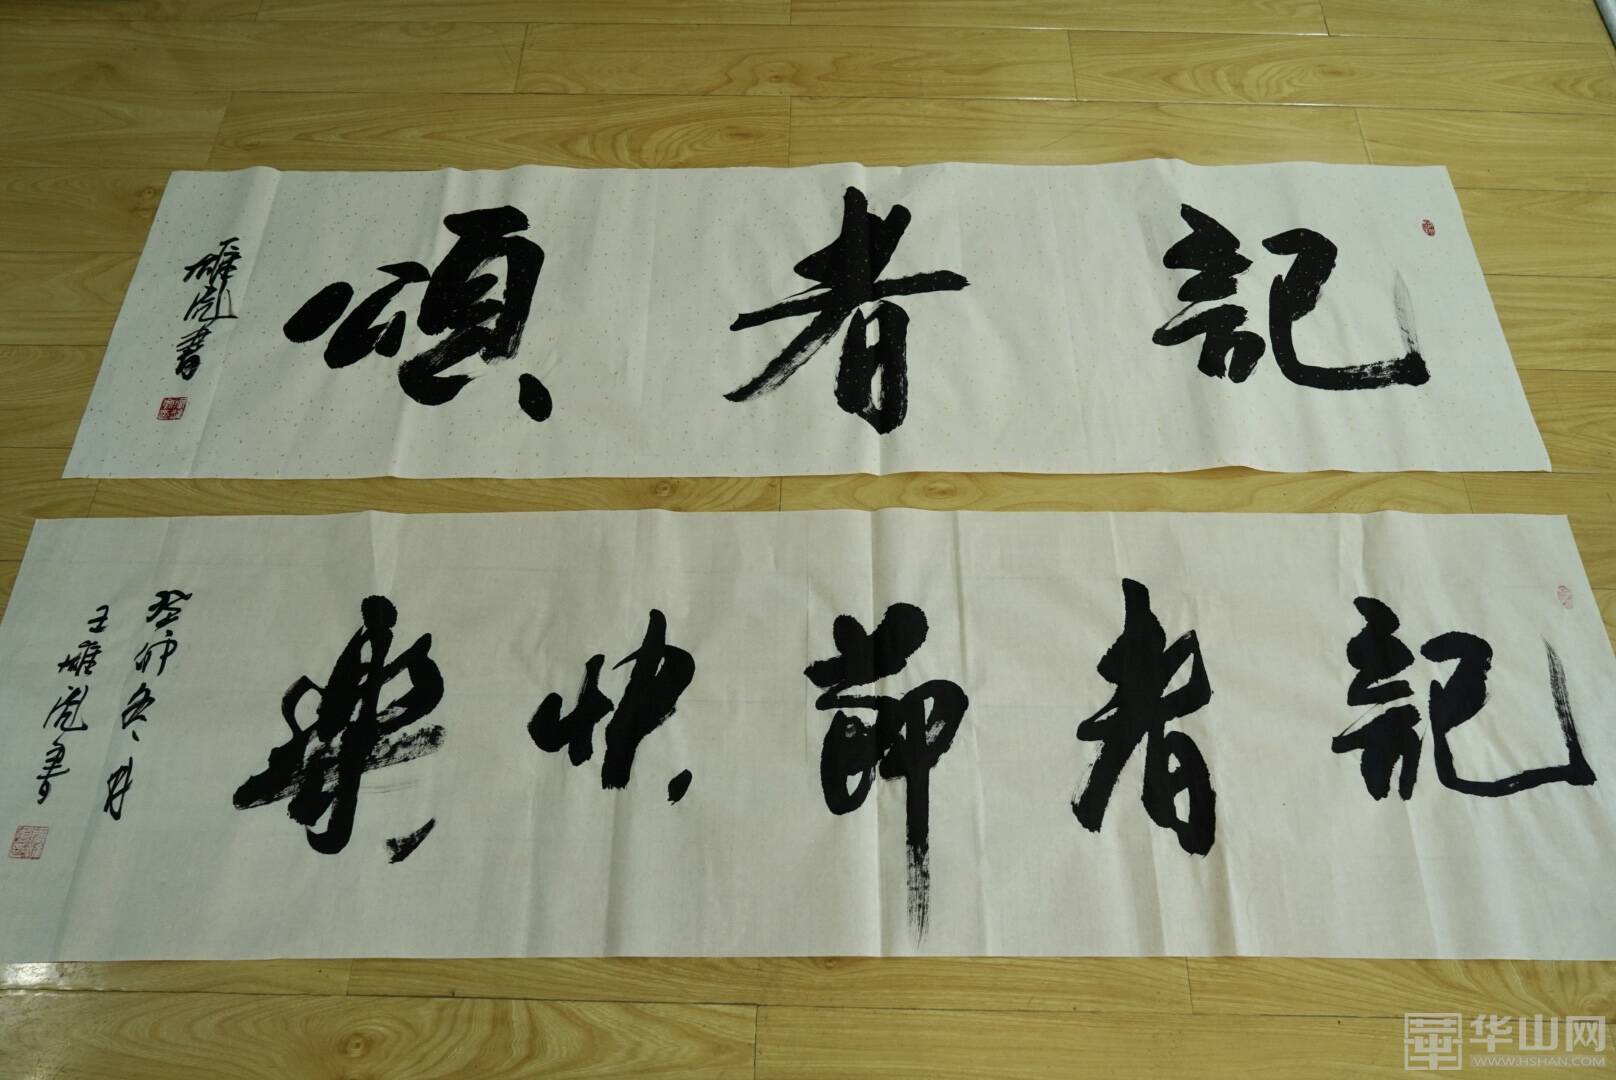 記者頌
雄彪書
記者節快樂
癸卯冬月
王雄彪書
華 华山网
WWW.HSHAN.COM